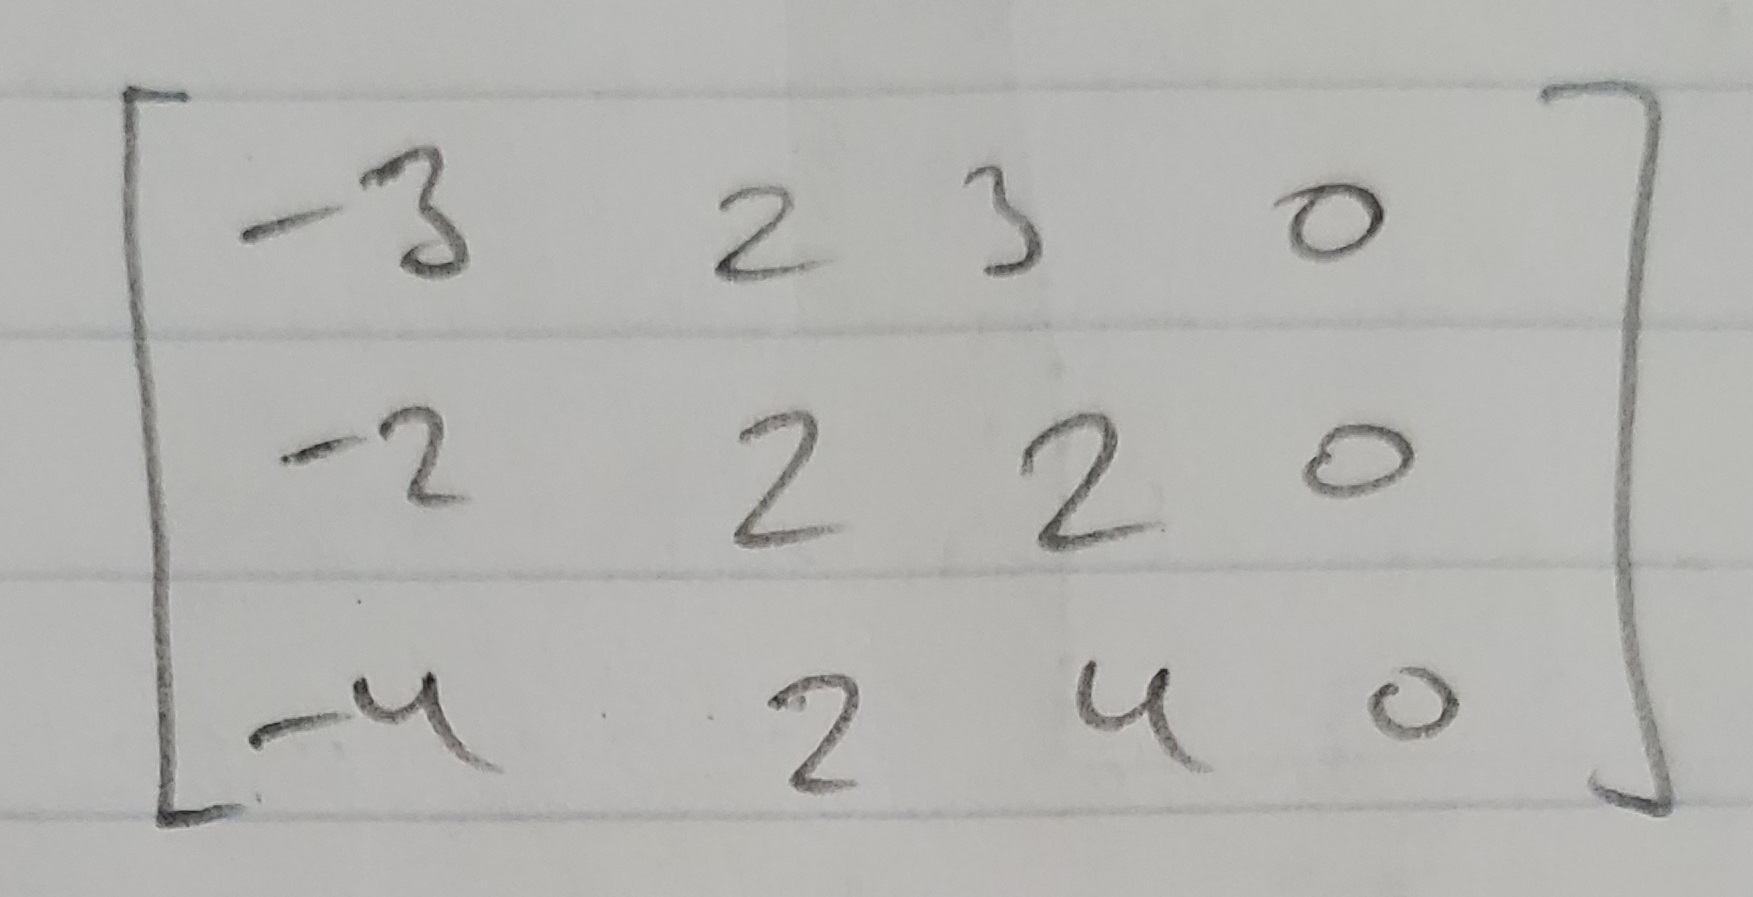 -3 2 3 0
-2 2 2 0
-4 2 4 0